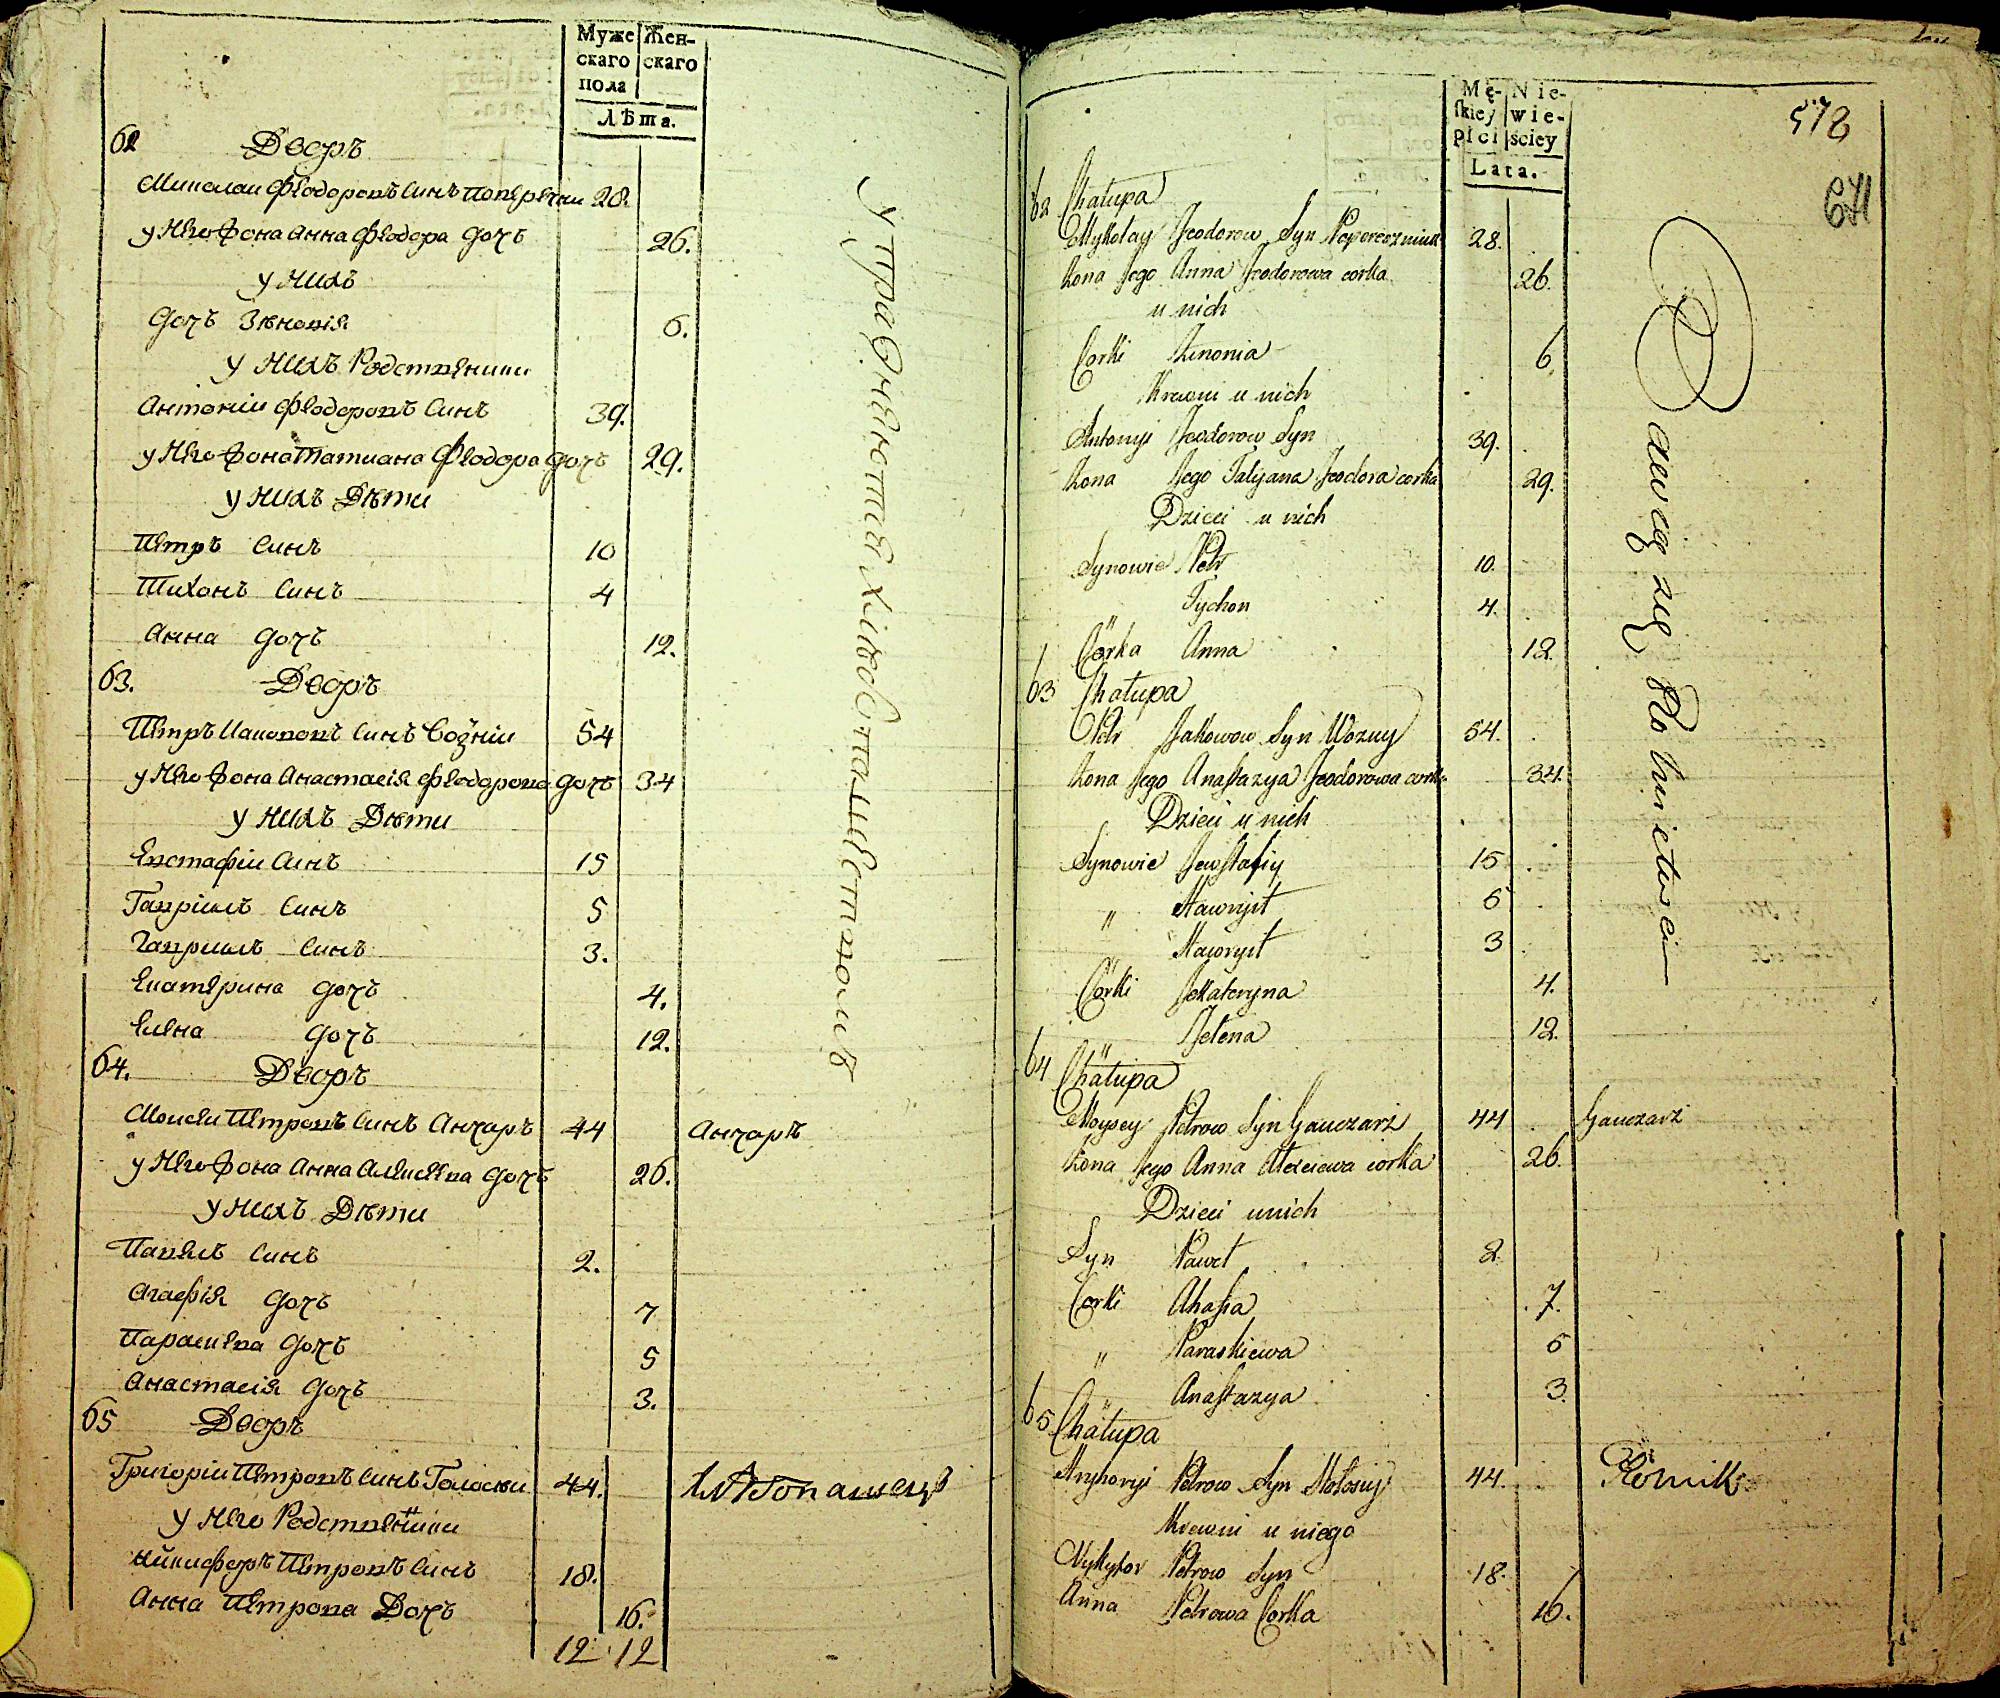 Муже
скаго
пола
Жен-
скаго
Лѣта.
62 Дворъ
Миколаи Феодоровъ Синъ Поперечни 28.
у Него Жона Анна Феодора Дочъ 26.
у Нихъ
Дочъ Зѣновія 6.
у Нихъ Родственики
Антоніи Феодоровъ Синъ 39.
у Него Жона Татиана Феодора Дочъ 29.
у Нихъ Дѣти
Петръ Синъ 10
Тихонъ Синъ 4
Анна Дочъ 12.
63. Дворъ
Петръ Иакововъ Синъ Возніи 54
у Него Жона Анастасія Феодорова Дочъ 34
у Нихъ Дѣти
Евстафіи Синъ 15
Гавріилъ Синъ 5
Гавриилъ Синъ 3.
Екатерина Дочъ 4.
Елена Дочъ 12.
64. Дворъ
Моисеи Петровъ Синъ Анчаръ 44 Анчаръ
у Него Жона Анна Алексеева Дочъ 26.
у Нихъ Дѣти
Павелъ Синъ 2.
Агафія Дочъ 7
Параскева Дочъ 5
Анастасія Дочъ 3.
65 Дворъ
Григоріи Петровъ Синъ Голоски 44.
у Него Родственики
Никифоръ Петровъ Синъ 18.
Анна Петрова Дочъ 16.
12 12
упражняется хлѣбопашествомъ
Mę-
skiey
płci
Nie-
wie-
ściey
Lata.
572
62 Chałupa
Mykołay Feodorow Syn Popereczniuk 28.
Żona Jego Anna Feodorowa corka 26.
u nich
Corki Zinonia 6.
Krewni u nich
Antonyi Feodorow Syn 39.
Żona Jego Tatyana Feodora corka 29.
Dzieci u nich
Synowie Petr 10.
" Tychon 4.
Córka Anna 12.
63 Chałupa
Petr Jakowow Syn Wozny 54.
Żona Jego Anastazya Feodorowa corka 34.
Dzieci u nich
Synowie Jewstafiy 15
" Hawryił 5
Hawryił 3
Córki Jekateryna 4.
" Jelena 12.
64 Chałupa
Moysey Petrow Syn Hanczarz 44 Ganczarz
Żona Jego Anna Alexiewa corka 26.
Dzieci u nich
Syn Paweł 2
Corki Ahafia 7.
" Paraskiewa 5
" Anastazya 3.
65 Chałupa
Hryhoryi Petrow Syn Hołosiy 44. Rolnik
Krewni u niego
Nykyfor Petrow Syn 18.
Anna Petrowa Corka 16.
Bawią się Rolnictwem